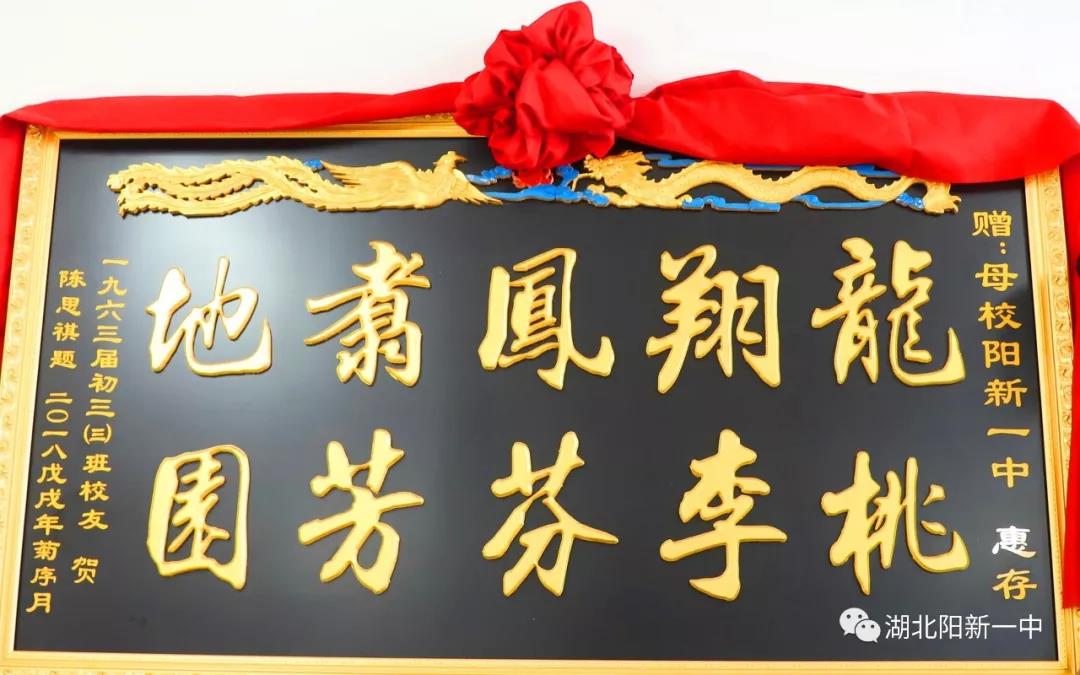 赠：母校阳新一中 惠存
龍翔鳳翥地
桃李芬芳园
一九六三届初三㈢班校友 贺
陈思祺题 二〇一八戊戌年菊序月
湖北阳新一中